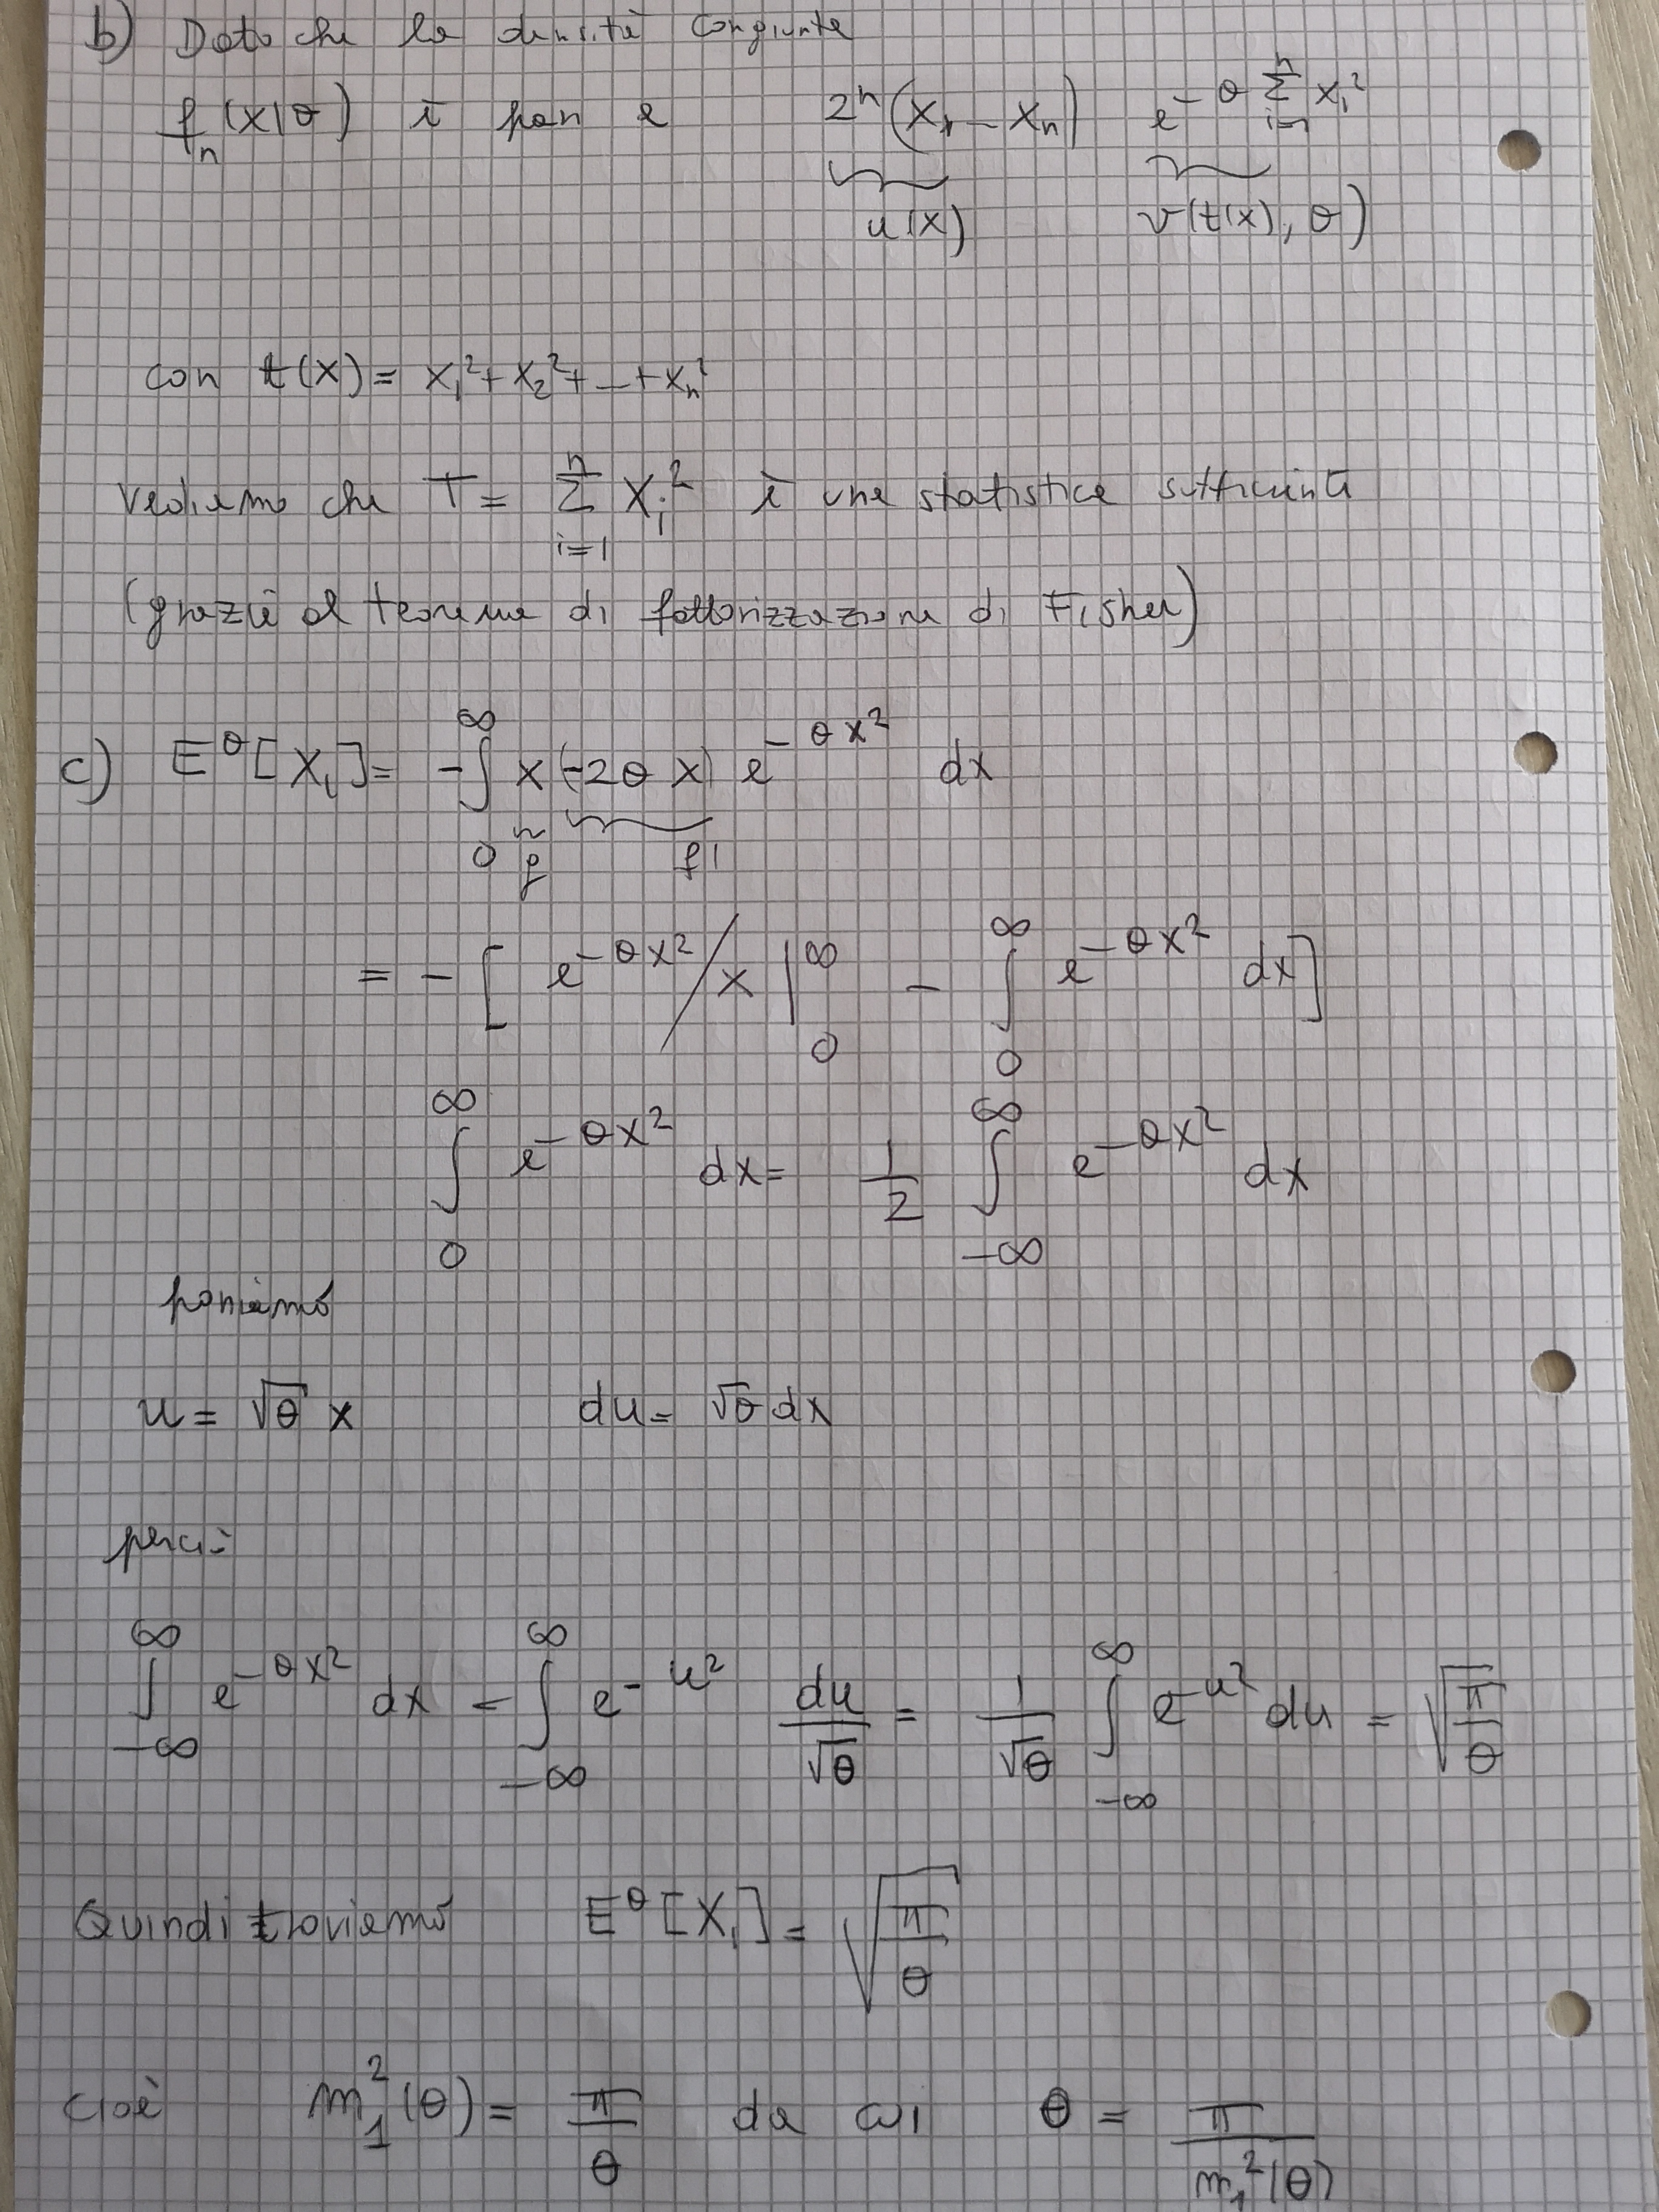 b) Dato che la densità congiunta
f_n (x|θ) è pari a 2^n (x_1 ... x_n) e^{-θ Σ_{i=1}^n x_i^2}
u(x) v(t(x), θ)
con t(x) = x_1^2 + x_2^2 + ... + x_n^2
vediamo che T = Σ_{i=1}^n X_i^2 è una statistica sufficiente
(grazie al teorema di fattorizzazione di Fisher)
c) E^θ[X_1] = - ∫_0^∞ x (-2θ x) e^{-θ x^2} dx
g f'
= - [ e^{-θ x^2} x |_0^∞ - ∫_0^∞ e^{-θ x^2} dx ]
∫_0^∞ e^{-θ x^2} dx = 1/2 ∫_{-∞}^∞ e^{-θ x^2} dx
poniamo
u = √θ x du = √θ dx
perciò
∫_{-∞}^∞ e^{-θ x^2} dx = ∫_{-∞}^∞ e^{-u^2} du/√θ = 1/√θ ∫_{-∞}^∞ e^{-u^2} du = √(π/θ)
Quindi troviamo E^θ[X_1] = √(π/θ)
cioè m_1^2(θ) = π/θ da cui θ = π/m_1^2(θ)